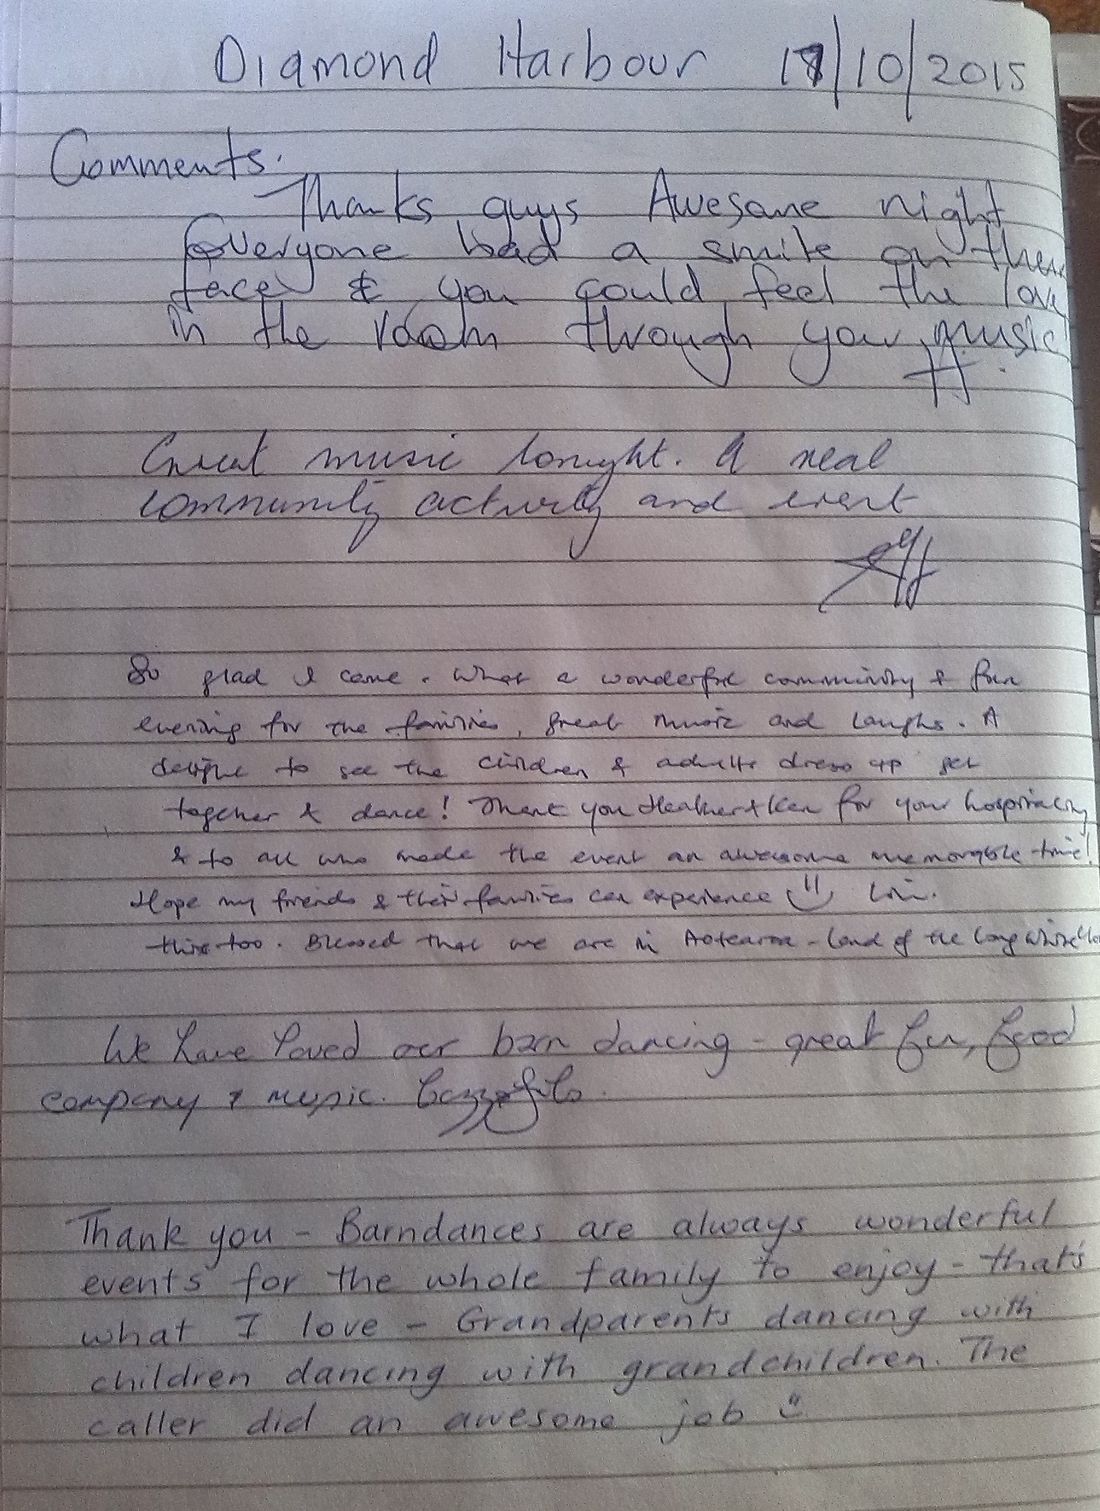 Diamond Harbour 17/10/2015
Comments.
Thanks guys Awesome night
Everyone had a smile on there
face & you could feel the love
in the room through your music
Great music tonight. A real
community activity and event
So glad I came. What a wonderful community & fun
evening for the families, great music and laughs. A
delight to see the children & adults dress up get
together & dance! Thank you Heather & Ken for your hospitality
& to all who made the event an awesome memorable time!
Hope my friends & their families can experience
this too. Blessed that we are in Aotearoa - land of the long white
We have loved our barn dancing - great fun, food
company & music.
Thank you - Barndances are always wonderful
events for the whole family to enjoy - that's
what I love - Grandparents dancing with
children dancing with grandchildren. The
caller did an awesome job